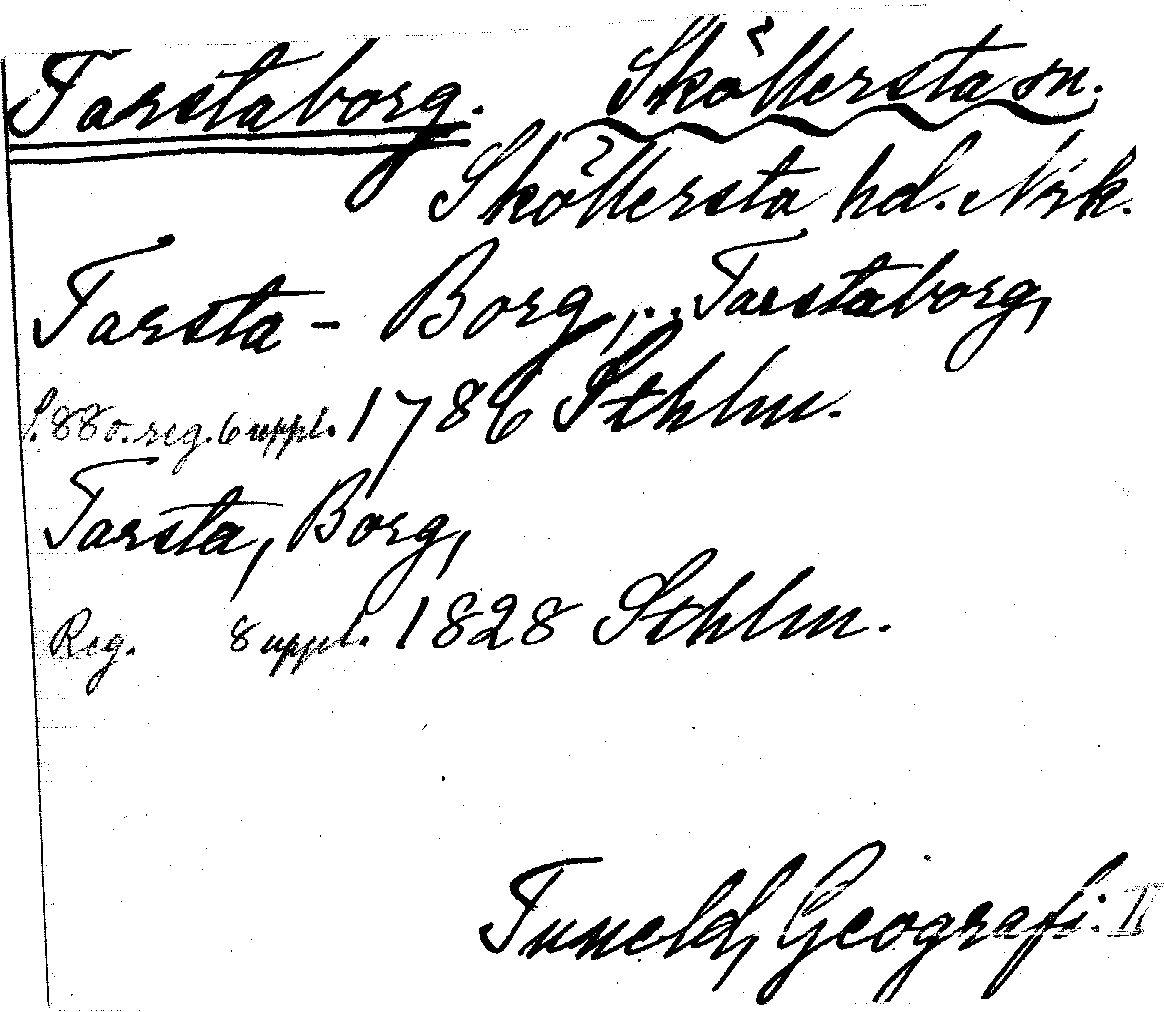 Tarstaborg. Sköllersta sn.
Sköllersta hd. Närk.
Tarsta - Borg, .. Tarstaborg,
s. 88 o. reg. 6 uppl. 1786 Sthlm.
Tarsta, Borg,
Reg. 8 uppl. 1828 Sthlm.
Tuneld, Geografi. II